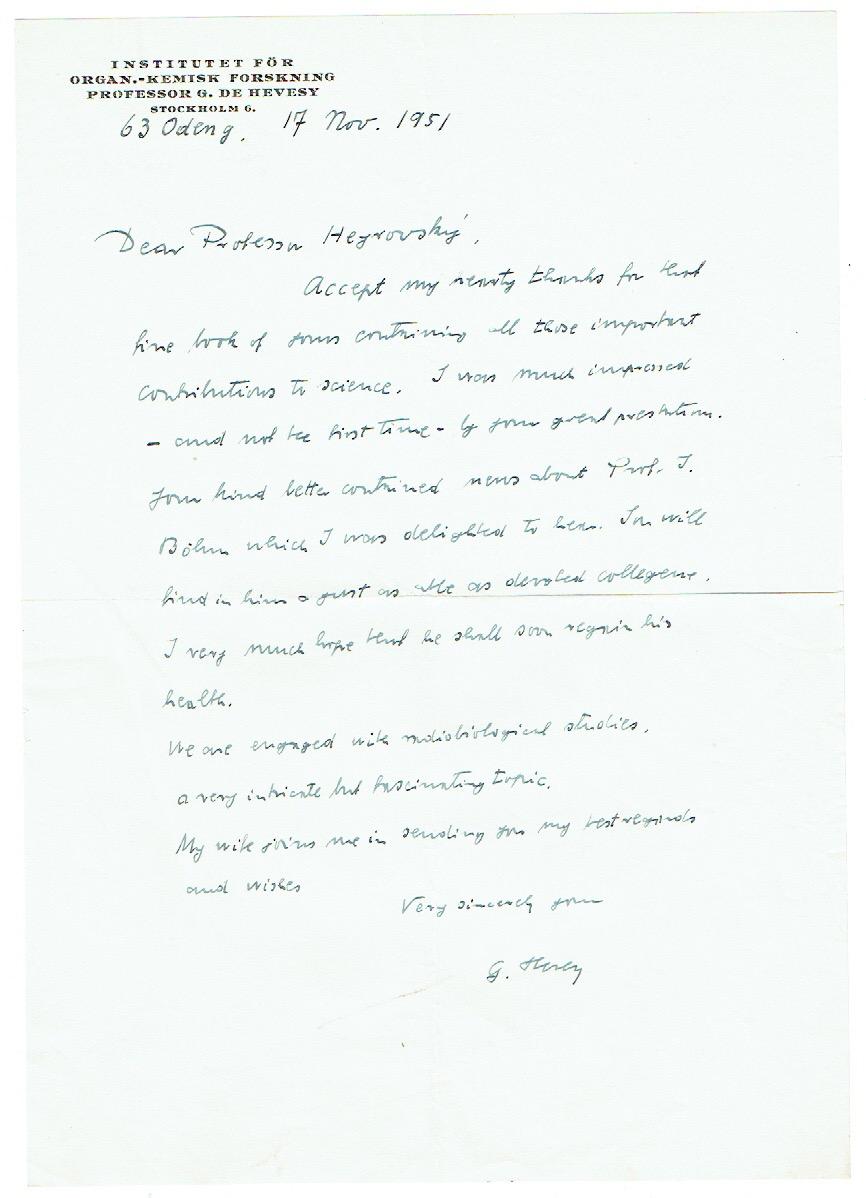 INSTITUTET FÖR
ORGAN.-KEMISK FORSKNING
PROFESSOR G. DE HEVESY
STOCKHOLM 6.
63 Odeng. 17 Nov. 1951
Dear Professor Heyrovský,
Accept my hearty thanks for that
fine book of yours containing all those important
contributions to science. I was much impressed
- and not the first time - by your great prestation.
Your kind letter contained news about Prof. J.
Böhm which I was delighted to hear. You will
find in him a just as able as devoted collegeue.
I very much hope that he shall soon regain his
health.
We are engaged with radiobiological studies,
a very intricate but fascinating topic.
My wife joins me in sending you my best regards
and wishes
Very sincerely yours
G. Hevesy